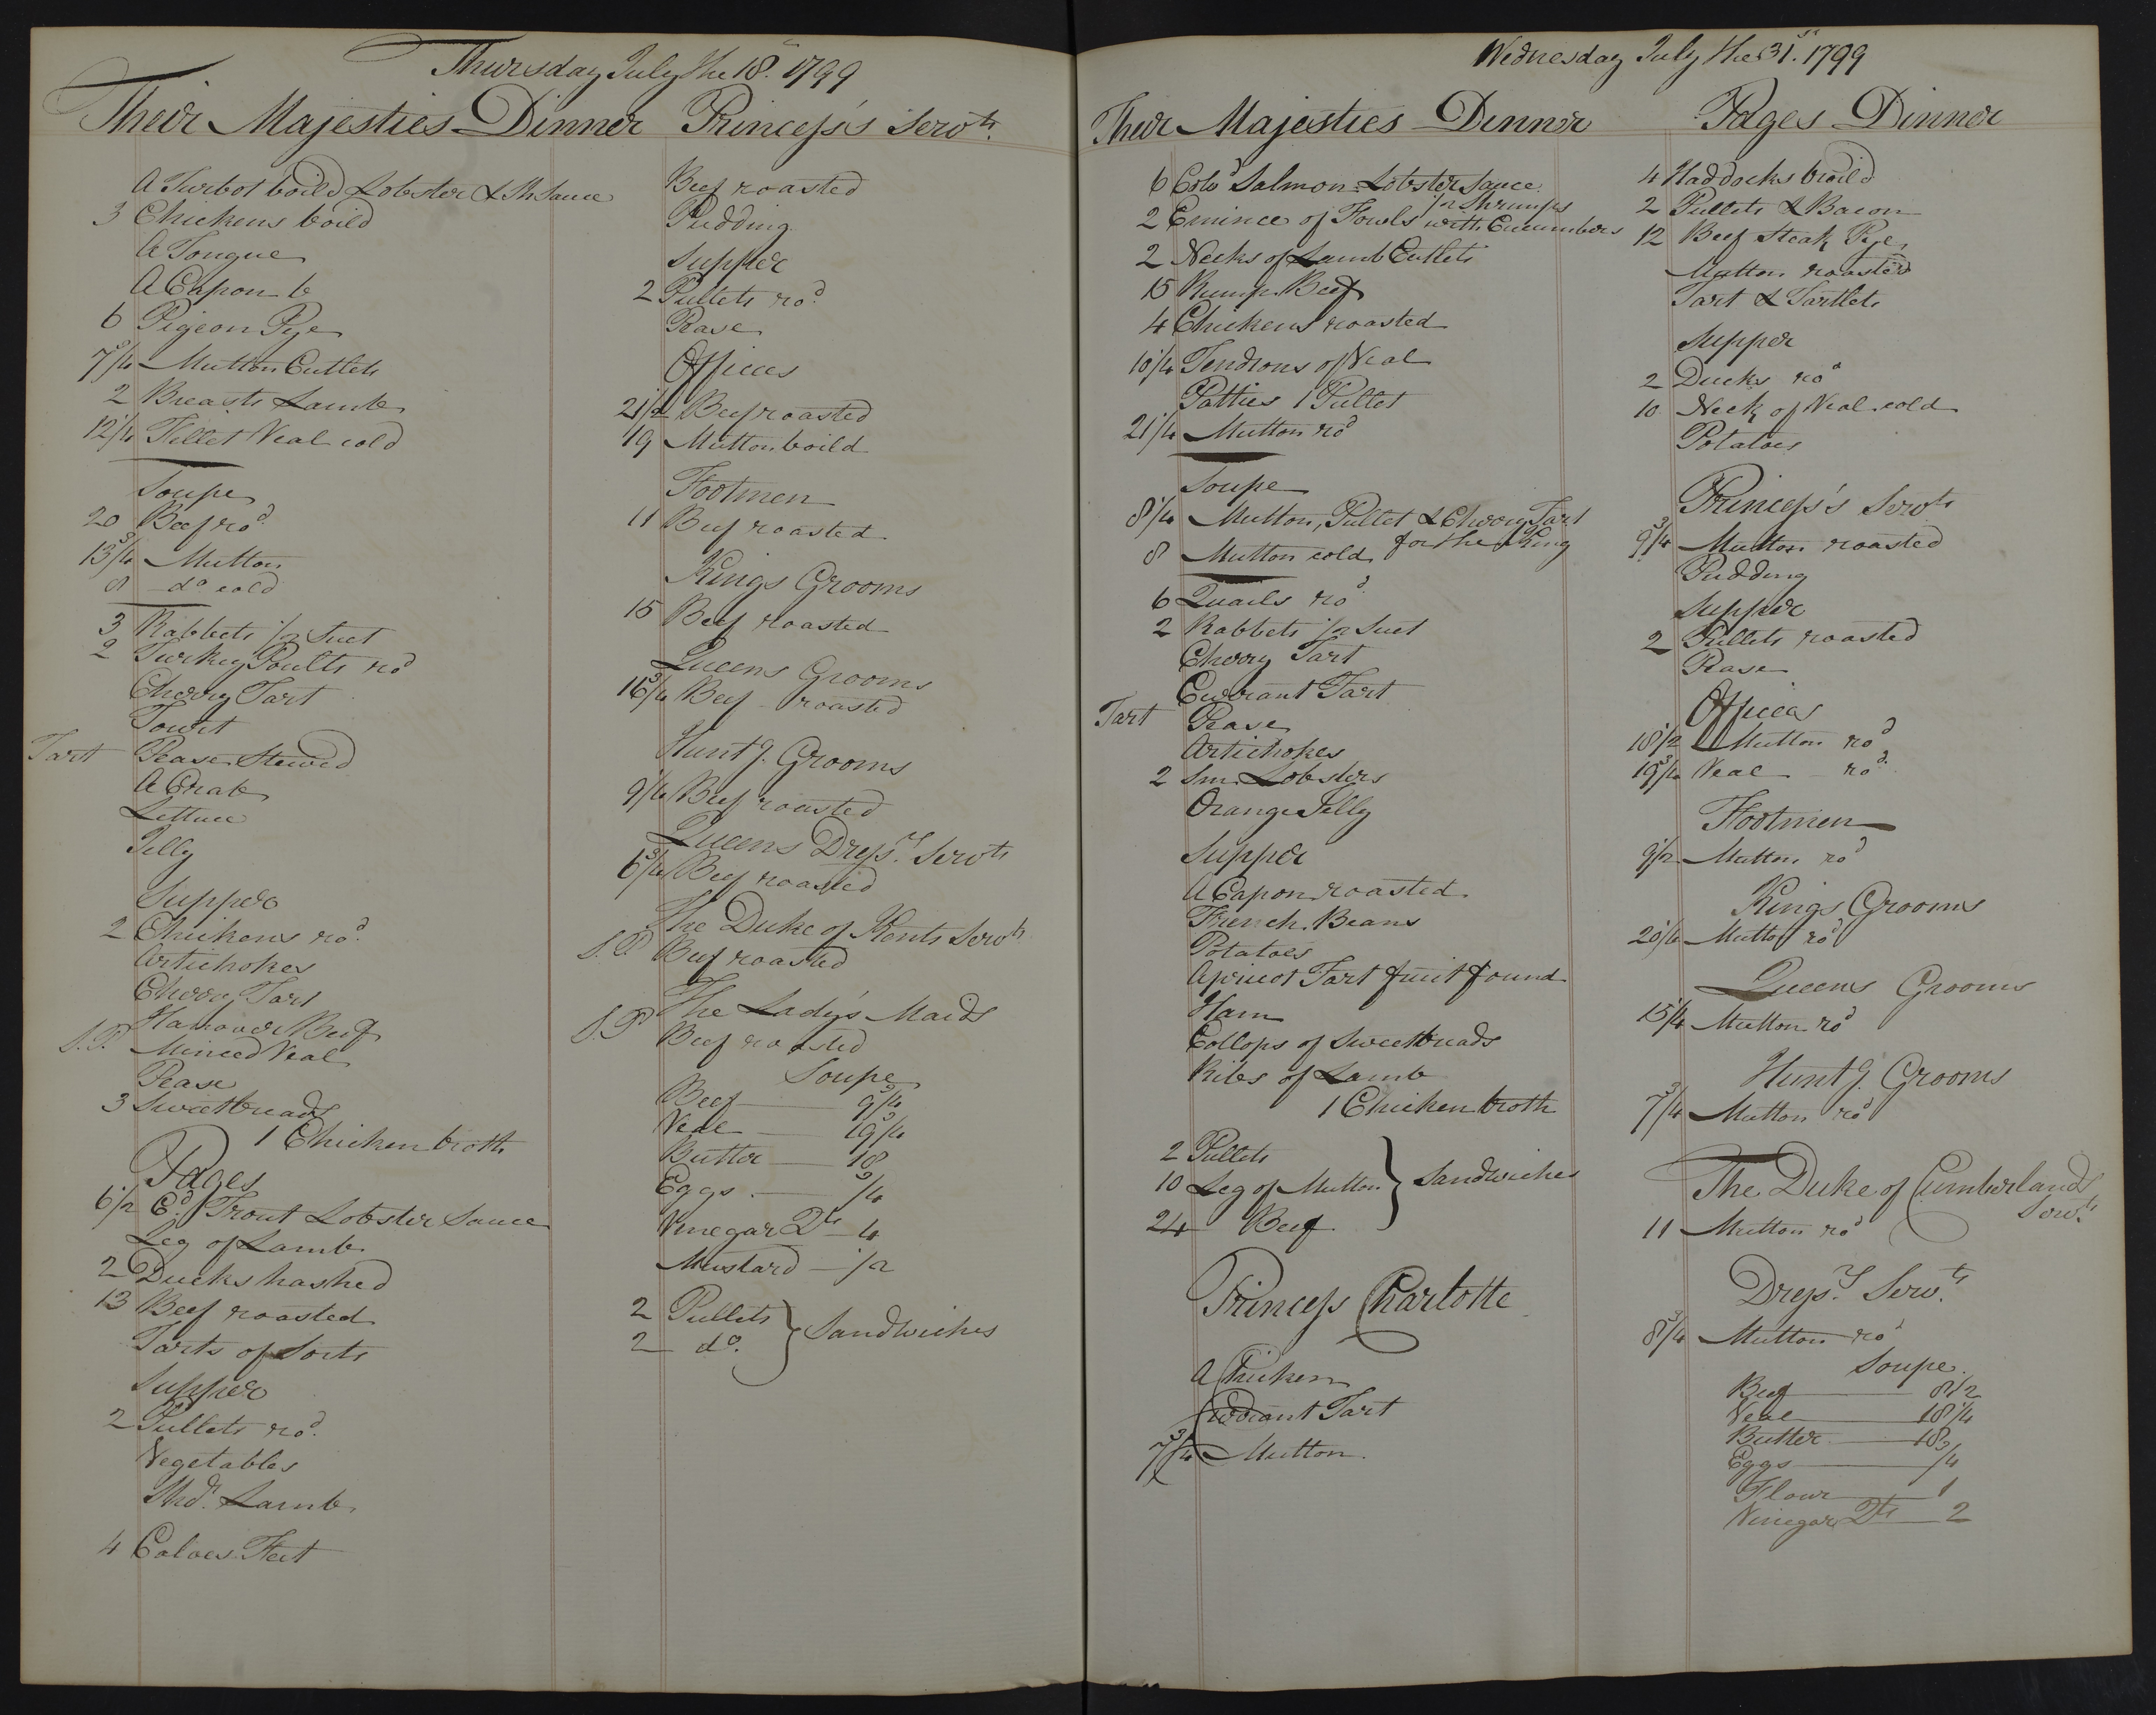 Thursday July the 18. 1799
Their Majesties Dinner
A Turbot boild Lobster & Sh Sauce
3 Chickens boild
A Tongue
A Capon b
6 Pigeon Pye
7 3/4 Mutton Cutlets
2 Breasts Lamb
12 1/4 Fillet Veal cold
Soupe
20 Beef rod.
13 3/4 Mutton
8 do cold
3 Rabbets 1/2 Suet
2 Turkey Poults rod
Cherry Tart
Tourt
Tart Pease Stewed
A Crab
Lettuce
Jelly
Supper
2 Chickens rod.
Artichokes
Cherry Tart
Hanover Beef
S.P. Minced Veal
Pease
3 Sweetbreads
1 Chicken broth
Pages
6 1/2 Cd. Trout Lobster Sauce
Leg of Lamb
2 Ducks hashed
13 Beef roasted
Tarts of Sorts
Supper
2 Pullets rod.
Vegetables
Shdr. Lamb
4 Calves Feet
Princess's Servts.
Beef roasted
Pudding
Supper
2 Pullets rod.
Pease
Offices
21 1/2 Beef roasted
19 Mutton boild
Footmen
11 Beef roasted
Kings Grooms
15 Beef roasted
Queens Grooms
16 3/4 Beef roasted
Huntg. Grooms
9 1/4 Beef roasted
Queens Dressr. Servts
6 3/4 Beef roasted
The Duke of Kents Servts
S.P. Beef roasted
The Lady's Maids
S.P. Beef roasted
Soupe
Beef 9 3/4
Veal 19 3/4
Butter 18
Eggs 3/4
Vinegar Qts 4
Mustard 1/2
2 Pullets } Sandwiches
2 do.
Wednesday July the 31st. 1799
Their Majesties Dinner
6 Cold Salmon Lobster Sauce
1/2 Shrimps
2 Emince of Fowls with Cucumbers
2 Necks of Lamb Cutlets
15 Rump Beef
4 Chickens roasted
10 1/4 Tendrons of Veal
Patties 1 Pullet
21 1/4 Mutton rod
Soupe
8 1/4 Mutton, Pullet & Cherry Tart
for the King
8 Mutton cold
6 Quails rod.
2 Rabbets 1/2 Suet
Cherry Tart
Currant Tart
Tart Pease
Artichokes
2 Sm. Lobsters
Orange Jelly
Supper
A Capon roasted
French Beans
Potatoes
Apricot Tart fruit found
Ham
Collops of Sweetbreads
Ribs of Lamb
1 Chicken broth
2 Pullets
10 Leg of Mutton } Sandwiches
24 Beef
Princess Charlotte
A Chicken
Currant Tart
7 3/4 Mutton
Pages Dinner
4 Haddocks broild
2 Pullets & Bacon
12 Beef Steak Pye
Mutton roasted
Tart & Tartlets
Supper
2 Ducks rod
10 Neck of Veal cold
Potatoes
Princess's Servts
9 3/4 Mutton roasted
Pudding
Supper
2 Pullets roasted
Pease
Offices
18 1/2 Mutton rod
19 3/4 Veal rod.
Footmen
9 1/2 Mutton rod
Kings Grooms
20 1/4 Mutton rod
Queens Grooms
15 1/4 Mutton rod
Huntg. Grooms
7 3/4 Mutton rod
The Duke of Cumberlands
Servts.
11 Mutton rod
Dressr. Servts.
8 3/4 Mutton rod
Soupe
Beef 8 1/2
Veal 18 1/4
Butter 18
Eggs 3/4
Flour 1
Vinegar Qts 2